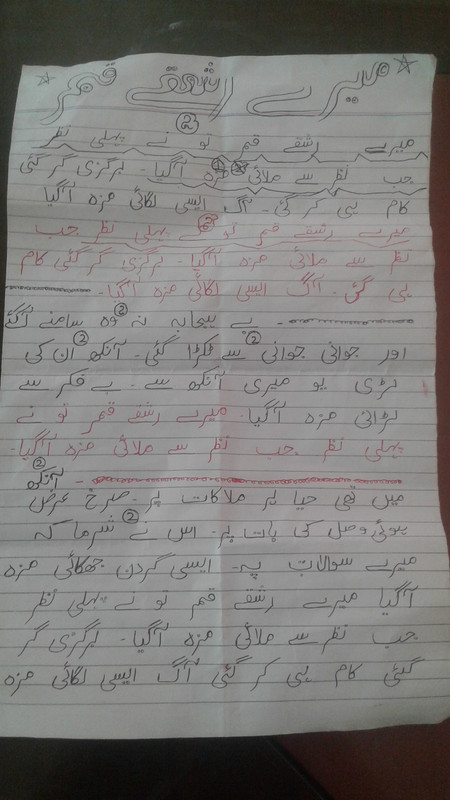 میرے رشقے قمر
②
میرے رشقے قمر تو نے پہلی نظر
جب نظر سے ملائی مزہ آگیا۔ لرگزی گر گئی
کام ہی کر گئی۔ آگ ایسی لگائی مزہ آگیا
میرے رشقے قمر تو نے پہلی نظر جب
نظر سے ملائی مزہ آگیا۔ لرگزی گر گئی کام
ہی گئ۔ آاگ ایسی لگائی مزہ آگیا۔
۔ بے بیجابہ نہ ② وہ سامنے آگئے
اور جوانی جوانی ② سے ٹکرا گئی۔ آنکھ ② ان کی
لڑی یو میری آنکھ سے۔ بے فکر سے
لڑائی مزہ آگیا۔ میرے رشقے قمر تو نے
پہلی نظر جب نظر سے ملائی مزہ آگیا۔
۔ آنکھ ②
میں تھی حیا ہر ملاکات پر۔ صرخ عرض
ہوئی وصل کی بات پر۔ اس نے ② شرما کہ
میرے سوالات پہ۔ ایسی گردن جھکائی مزہ
آگیا میرے رشقے قمر تو نے پہلی نظر
جب نظر سے ملائی مزہ آگیا۔ لرگزی گر
گئی کام ہی کر گئی آگ ایسی لگائی مزہ